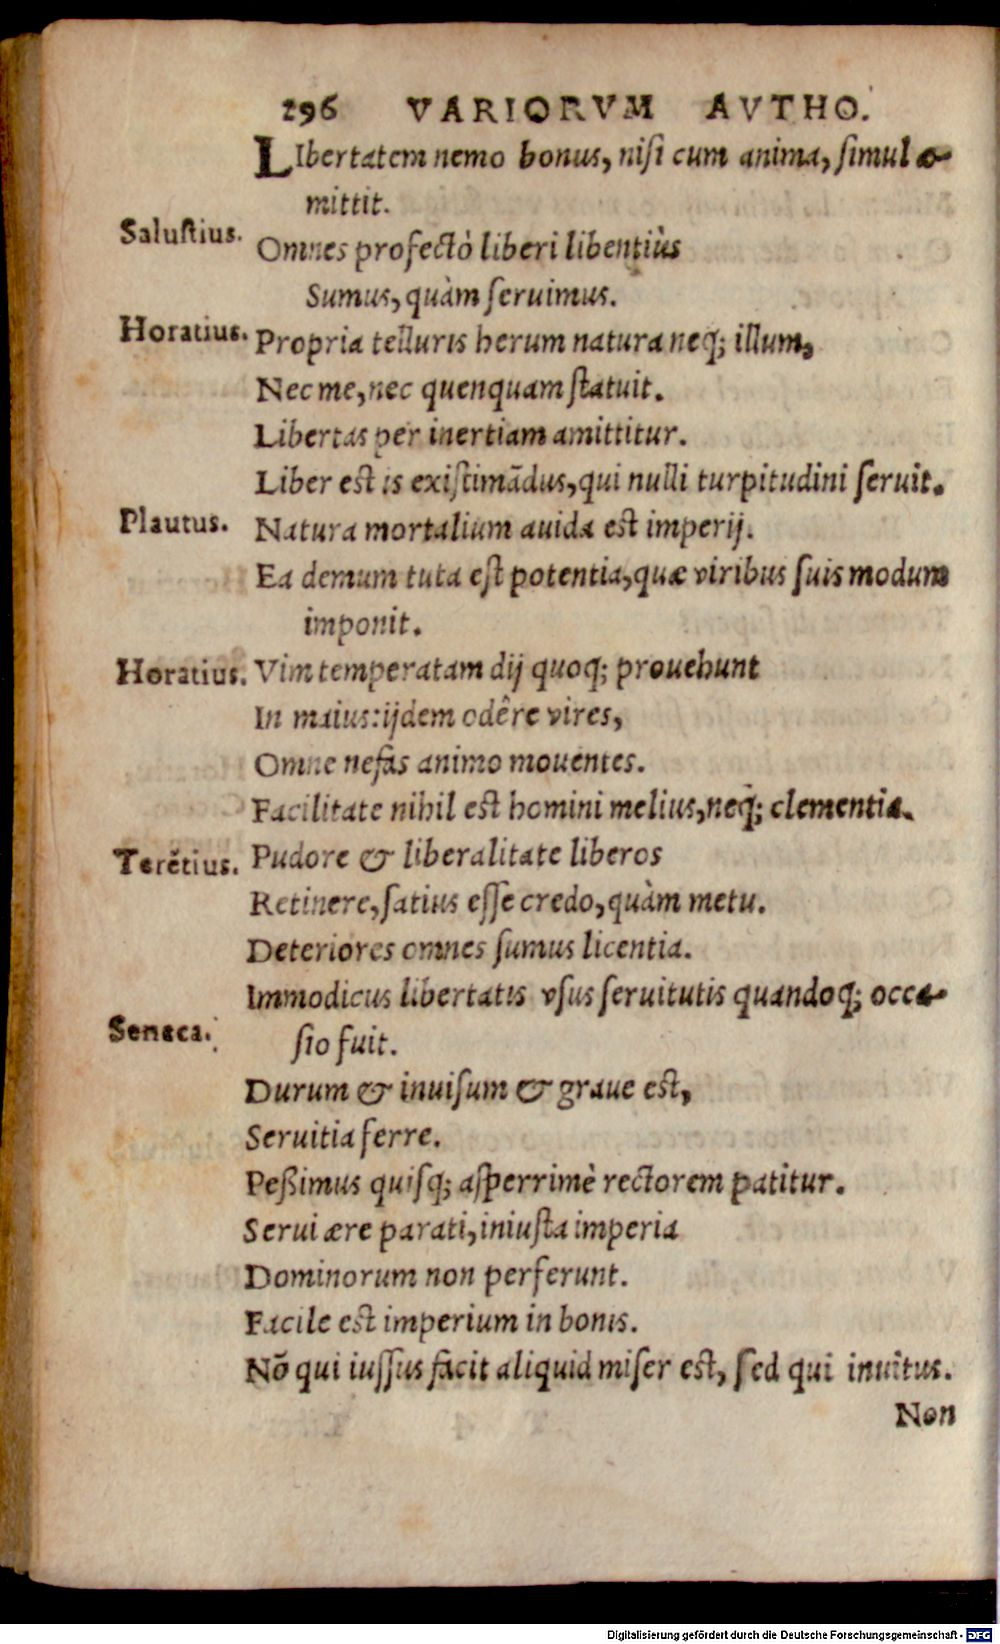 296 VARIORVM AVTHO.
LIbertatem nemo bonus, nisi cum anima, simul a-
mittit.
Salustius.
Omnes profectò liberi libentiùs
Sumus, quàm seruimus.
Horatius. Propria telluris herum natura neq; illum,
Nec me, nec quenquam statuit.
Libertas per inertiam amittitur.
Liber est is existimãdus, qui nulli turpitudini seruit.
Plautus. Natura mortalium auida est imperij.
Ea demum tuta est potentia, quæ viribus suis modum
imponit.
Horatius. Vim temperatam dij quoq; prouehunt
In maius: ijdem odêre vires,
Omne nefas animo mouentes.
Facilitate nihil est homini melius, neq; clementia.
Terẽtius. Pudore & liberalitate liberos
Retinere, satius esse credo, quàm metu.
Deteriores omnes sumus licentia.
Immodicus libertatis vsus seruitutis quandoq; occa-
Seneca. sio fuit.
Durum & inuisum & graue est,
Seruitia ferre.
Peßimus quisq; asperrimè rectorem patitur.
Serui ære parati, iniusta imperia
Dominorum non perferunt.
Facile est imperium in bonis.
Nõ qui iussus facit aliquid miser est, sed qui inuitus.
Non
Digitalisierung gefördert durch die Deutsche Forschungsgemeinschaft - DFG